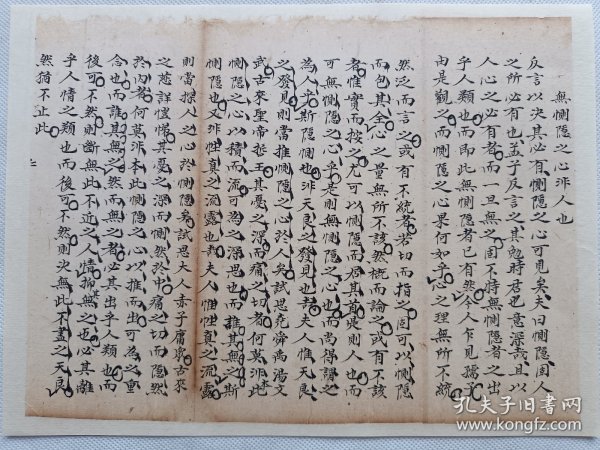 無惻隱之心非人也
反言以决其必有惻隱之心可見矣夫曰惻隱固人
之所必有也孟子反言之其勉時君也意深哉且以
人心之必有者而一旦無之固不特無惻隱者之出
乎人類也而即此無惻隱者已有然今人乍見孺子
由是觀之而惻隱之心果何如乎心之理無所不統
然泛而言之或有不統者若切而指之固可以惻隱
而包其全心之量無所不該然概而論之或有不該
者惟實而按之尤可以惻隱而居其首噫則人也而
可無惻隱之心乎是則無惻隱之心也而尚得謂之
為人乎斯隱惻也非天良之發見也哉夫人惟天良
之發見則當推惻隱之心於人矣試思堯舜禹湯文
武古來聖帝哲王其憂之深而痛之切者何莫非此
惻隱之心以積而流可悲之深思也而推其無之斯
惻隱也又非性真之流露也哉夫人惟性真之流露
則當探人之心於惻隱矣試思大人赤子庸衆古來
之慈詳愷悌其憂之深而惻然於中痛之切而隱然
於內者何莫非本此惻隱之心以推而出可為之重
念也而誰其無之然而無之者必其出乎人類也而
後可不然則斷無此不近之人情抑無之也必其離
乎人情之類也而後可不然則决無此不盡之天良
然猶不止此
孔夫子旧书网
www.kongfz.com